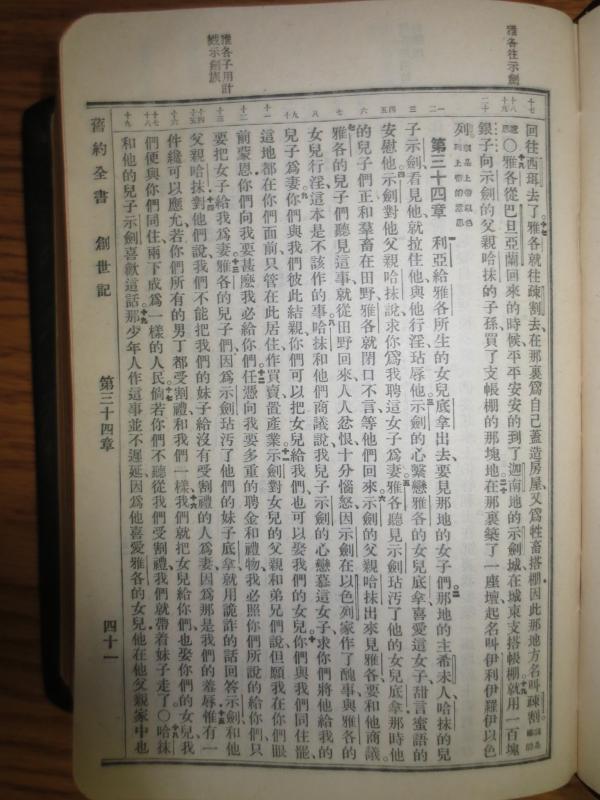 雅各往示劍
雅各子用計
戮示劍族
回往西珥去了、雅各就往疎割去、在那裏爲自己蓋造房屋、又爲牲畜搭棚、因此那地方名叫疎割
○雅各從巴旦亞蘭回來的時候、平平安安的到了迦南地的示劍城、在城東支搭帳棚、就用一百塊
銀子、向示劍的父親哈抹的子孫、買了支帳棚的那塊地、在那裏築了一座壇、起名叫伊利伊羅伊以色
列
第三十四章 利亞給雅各所生的女兒底拿出去、要見那地的女子們、那地的主希未人哈抹的兒
子示劍、看見他就拉住他與他行淫玷辱他、示劍的心繫戀雅各的女兒底拿、喜愛這女子、甜言蜜語的
安慰他、示劍對他父親哈抹說、求你爲我聘這女子爲妻、雅各聽見示劍玷汚了他的女兒底拿、那時他
的兒子們正和羣畜在田野、雅各就閉口不言、等他們回來、示劍的父親哈抹出來見雅各、要和他商議、
雅各的兒子們聽見這事、就從田野回來、人人忿恨、十分惱怒、因示劍在以色列家作了醜事、與雅各的
女兒行淫、這本是不該作的事、哈抹和他們商議說、我兒子示劍的心戀慕這女子、求你們將他給我的
兒子爲妻、你們與我們彼此結親、你們可以把女兒給我們、也可以娶我們的女兒、你們與我們同住罷、
這地都在你們面前、只管在此居住、作買賣、置產業、示劍對女兒的父親和弟兄們說、但願我在你們眼
前蒙恩、你們向我要甚麼、我必給你們、任憑向我要多重的聘金和禮物、我必照你們所說的給你們、只
要把女子給我爲妻、雅各的兒子們、因爲示劍玷汚了他們的妹子底拿、就用詭詐的話回答示劍和他
父親哈抹、對他們說、我們不能把我們的妹子給沒有受割禮的人爲妻、因爲那是我們的羞辱、惟有一
件纔可以應允、若你們所有的男丁都受割禮、和我們一樣、我們就把女兒給你們、也娶你們的女兒、我
們便與你們同住、兩下成爲一樣的人民、倘若你們不聽從我們受割禮、我們就帶着妹子走了、○哈抹
和他的兒子示劍喜歡這話、那少年人作這事並不遲延、因爲他喜愛雅各的女兒、他在他父親家中也
舊約全書 創世記 第三十四章 四十一